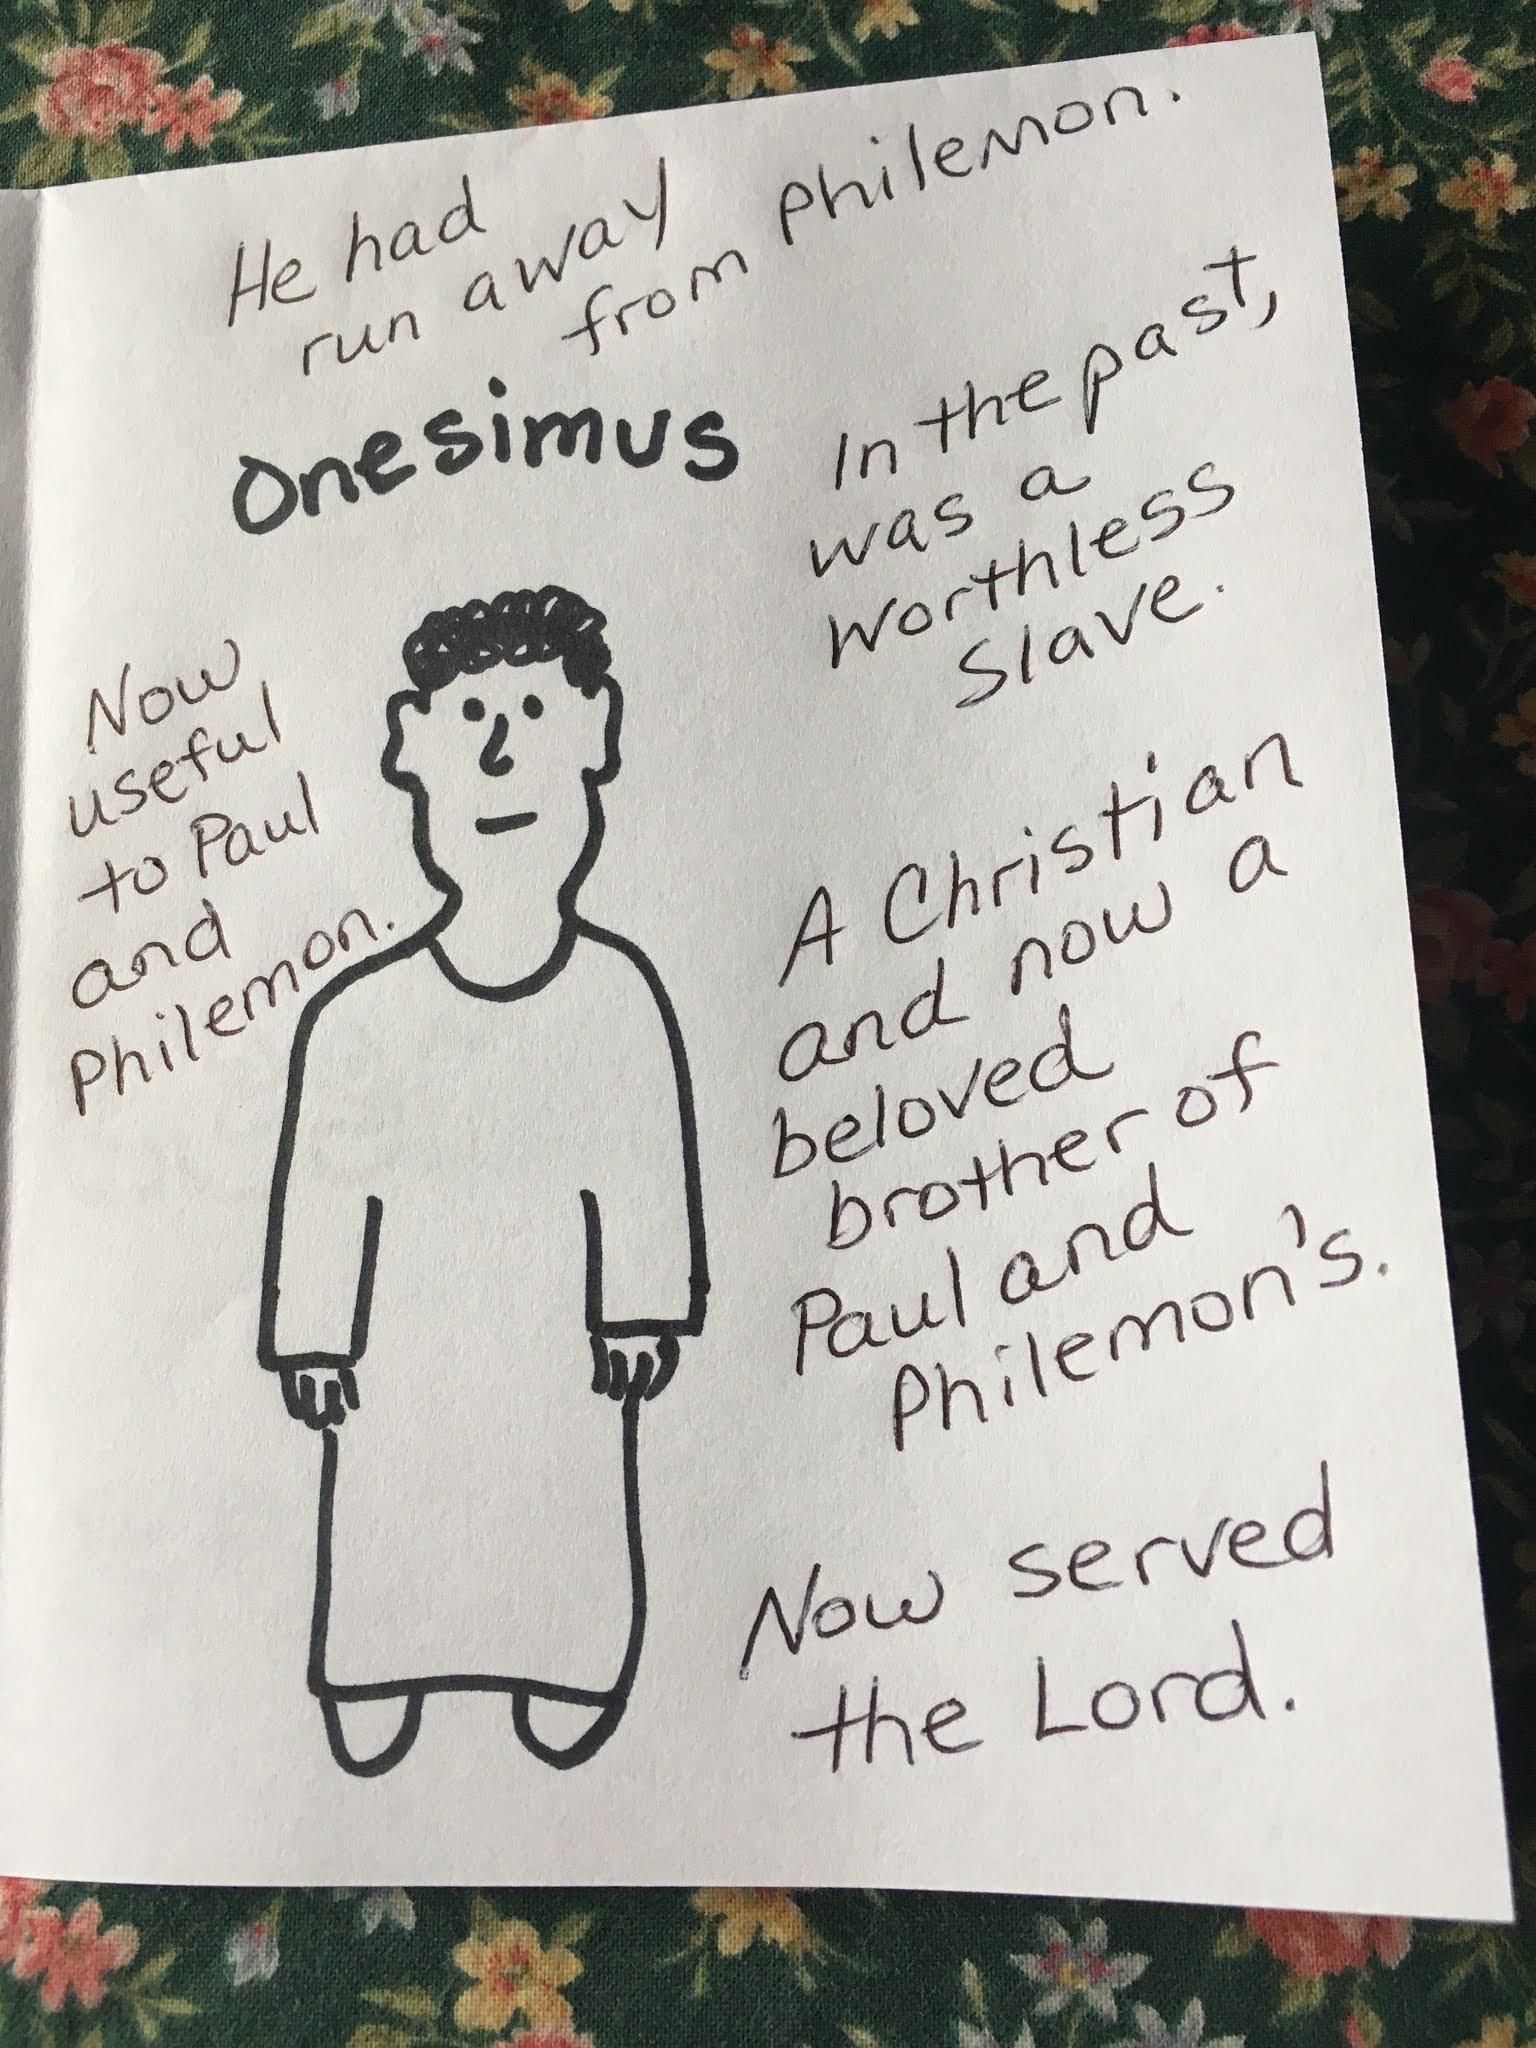 He had
run away
from Philemon.
Onesimus
In the past,
was a
worthless
slave.
Now
useful
to Paul
and
Philemon.
A Christian
and now a
beloved
brother of
Paul and
Philemon's.
Now served
the Lord.